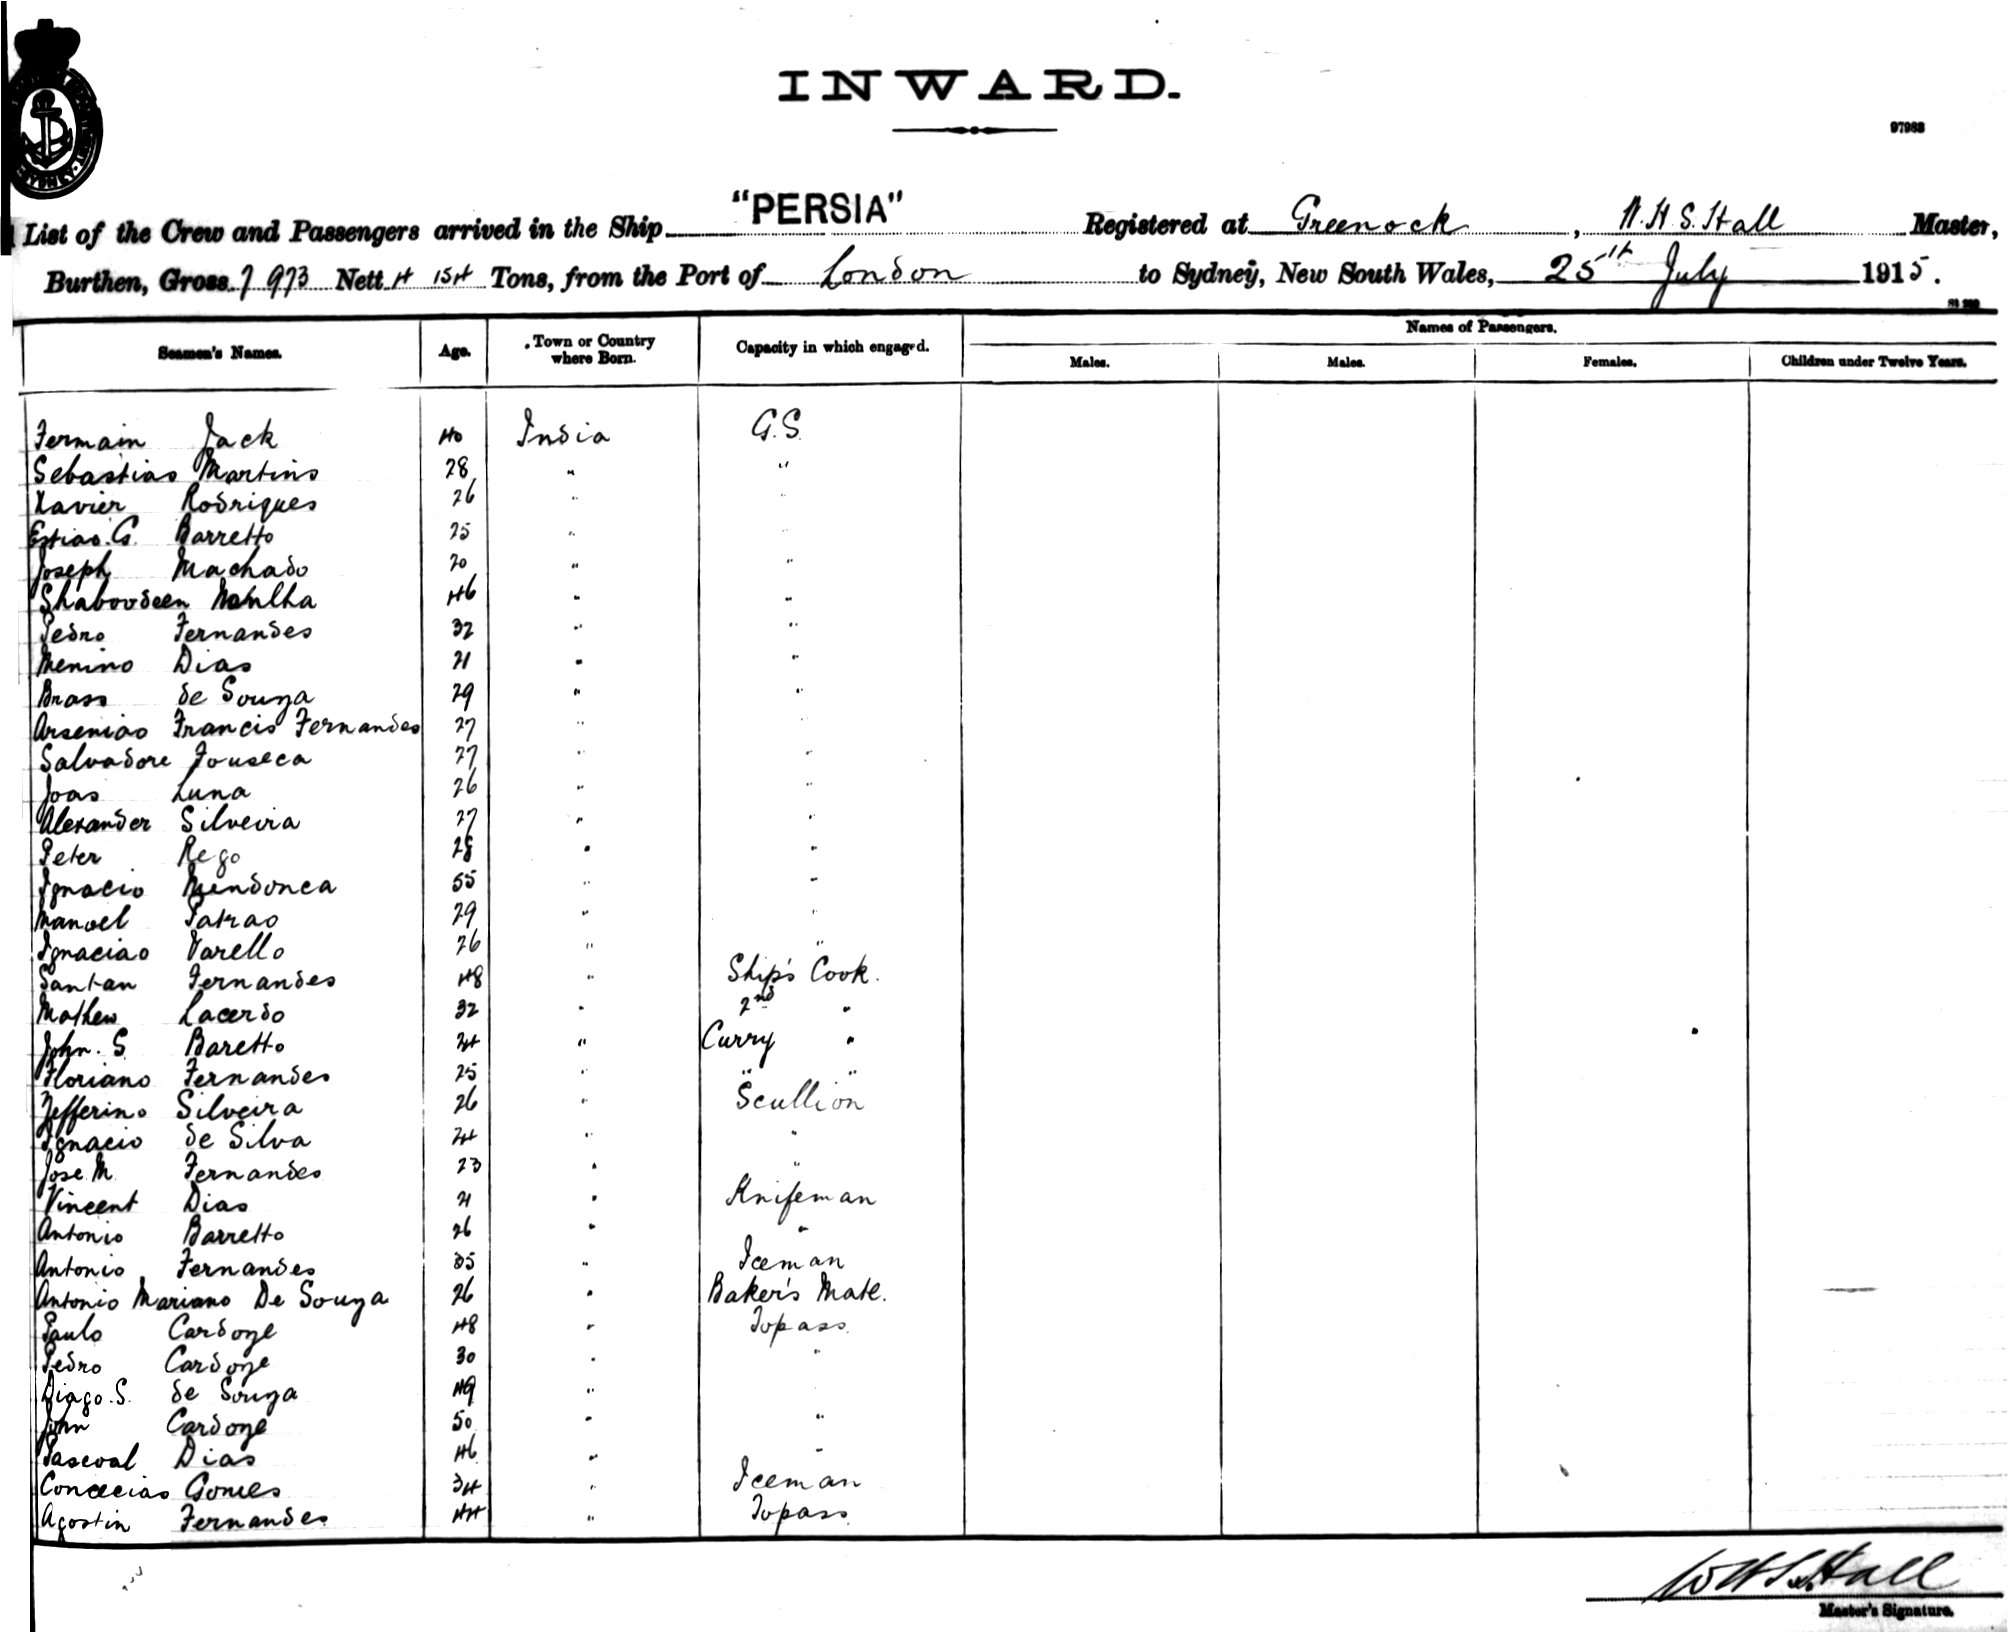 INWARD.
97983
List of the Crew and Passengers arrived in the Ship "PERSIA" Registered at Greenock, W. H. S. Hall Master,
Burthen, Gross 7973 Nett 4 154 Tons, from the Port of London to Sydney, New South Wales, 25th July 1915.
Seamen's Names. Age. Town or Country where Born. Capacity in which engaged. Names of Passengers.
Males. Males. Females. Children under Twelve Years.
Fermain Jack 40 India G.S.
Sebastiao Martins 28 " "
Xavier Rodrigues 26 " "
Estiao. G. Barretto 25 " "
Joseph Machado 20 " "
Shaboodeen 46 " "
Pedro Fernandes 32 " "
Menino Dias 21 " "
Brass de Souza 29 " "
Arseniao Francis Fernandes 27 " "
Salvadore Fonseca 27 " "
Joao Luna 26 " "
Alexander Silveira 27 " "
Peter Rego 28 " "
Ignacio Mendonca 55 " "
Manoel Patrao 29 " "
Ignaciao Varello 26 " "
Santan Fernandes 48 " Ship's Cook.
Mathew Lacerdo 32 " 2nd "
John. S. Baretto 24 " Curry "
Floriano Fernandes 25 " " "
Zefferino Silveira 26 " Scullion
Ignacio de Silva 24 " "
Jose M Fernandes 23 " "
Vincent Dias 21 " Knifeman
Antonio Barretto 26 " "
Antonio Fernandes 35 " Iceman
Antonio Mariano De Souza 26 " Baker's Mate.
Paulo Cardoze 48 " Topass.
Pedro Cardoze 30 " "
Diago. S. de Souza 49 "
John Cardoze 50 " "
Pascoal Dias 46 " "
Conceciao Gomes 34 " Iceman
Agostin Fernandes 44 " Topass.
W H S. Hall
Master's Signature.